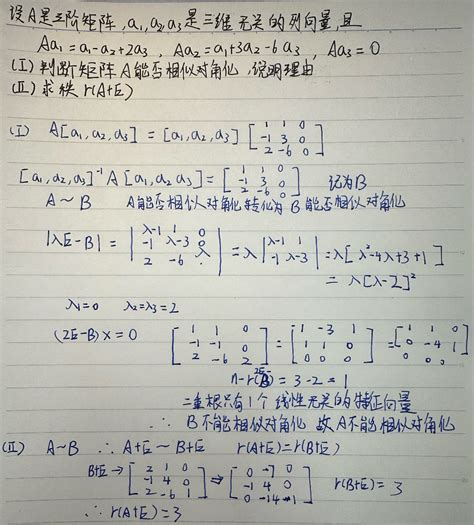 设A是三阶矩阵,a₁,a₂ a₃是三维无关的列向量,且
Aa₁=a₁-a₂+2a₃, Aa₂=a₁+3a₂-6a₃, Aa₃=0
(I) 判断矩阵A能否相似对角化,说明理由
(II) 求秩 r(A+E)
(I) A[a₁,a₂,a₃] = [a₁,a₂,a₃] [1 1 0; -1 3 0; 2 -6 0]
[a₁,a₂,a₃]⁻¹A[a₁,a₂ a₃] = [1 1 0; -1 3 0; 2 -6 0] 记为B
A~B A能否相似对角化转化为B能否相似对角化
|λE-B| = |λ-1 1 0; -1 λ-3 0; 2 -6 λ| = λ|λ-1 1; -1 λ-3| = λ[λ²-4λ+3+1]
= λ[λ-2]²
λ₁=0 λ₂=λ₃=2
(2E-B)x=0 [1 1 0; -1 -1 0; 2 -6 2] = [1 -3 1; 1 1 0; 0 0 0] = [1 1 0; 0 -4 1; 0 0 0]
n-r(2E-B) = 3-2 = 1
二重根只有1个线性无关的特征向量
∴ B不能相似对角化 故A不能相似对角化
(II) A~B ∴ A+E ~ B+E r(A+E)=r(B+E)
B+E → [2 1 0; -1 4 0; 2 -6 1] ⇒ [0 -7 0; -1 4 0; 0 -14 1] r(B+E) = 3
∴ r(A+E)=3